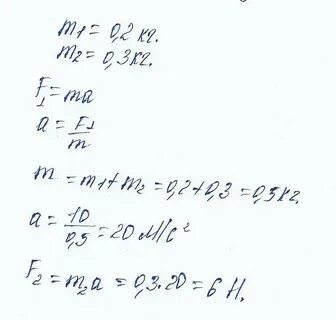 m1 = 0,2 кг.
m2 = 0,3 кг.
F1 = ma
a = F1/m
m = m1 + m2 = 0,2 + 0,3 = 0,5 кг.
a = 10/0,5 = 20 м/с²
F2 = m2a = 0,3·20 = 6 Н.